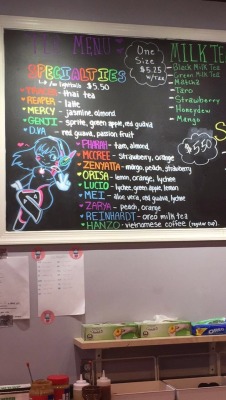 MENU
SPECIALTIES
w/ lightbulb $5.50
TRACER - thai tea
REAPER - latte
MERCY - jasmine, almond
GENJI - sprite, green apple, red guava
D.VA - red guava, passion fruit
PHARAH - taro, almond,
MCCREE - strawberry, orange
ZENYATTA - mango, peach, strawberry
ORISA - lemon, orange, lychee
LUCIO - lychee, green apple, lemon
MEI - aloe vera, red guava, lychee
ZARYA - peach, orange
REINHARDT - oreo milk tea
HANZO - vietnamese coffee (regular cup).
One
Size
$5.25
w/Tax
MILK TE
Black Milk Tea
Green Milk Tea
Matcha
Taro
Strawberry
Honeydew
Mango
$5.50